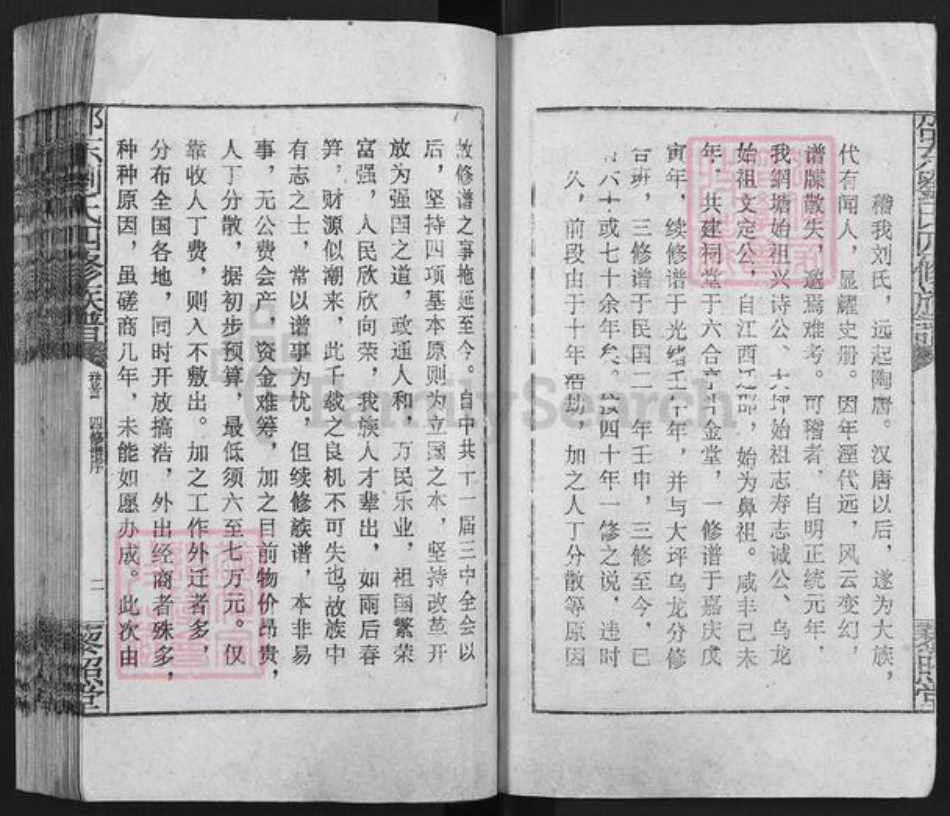 稽我刘氏，远起陶唐。汉唐以后，遂为大族，
代有闻人，显耀史册。因年湮代远，风云变幻，
谱牒散失，邈焉难考。可稽者，自明正统元年，
我網塘始祖兴诗公、大坪始祖志寿志诚公、乌龙
始祖文定公，自江西迁邵，始为鼻祖。咸丰己未
年，共建祠堂于六合亭千金堂，一修谱于嘉庆戊
寅年，续修谱于光绪壬午年，并与大坪乌龙分修
合班，三修谱于民国二 年壬申，三修至今，已
六十或七十余年矣。按四十年一修之说，违时
久，前段由于十年浩劫，加之人丁分散等原因
故修谱之事拖延至今。自中共十一届三中全会以
后，坚持四项基本原则为立国之本，坚持改革开
放为强国之道，政通人和，万民乐业，祖国繁荣
富强，人民欣欣向荣，我族人才辈出，如雨后春
笋，财源似潮来，此千载之良机不可失也。故族中
有志之士，常以谱事为忧，但续修族谱，本非易
事，无公费会产，资金难筹，加之目前物价昂贵，
人丁分散，据初步预算，最低须六至七万元。仅
靠收人丁费，则入不敷出。加之工作外迁者多，
分布全国各地，同时开放搞活，外出经商者殊多，
种种原因，虽磋商几年，未能如愿办成。此次由
邵东刘氏四修族谱
卷首 四修谱序
二
黎照堂
FamilySearch